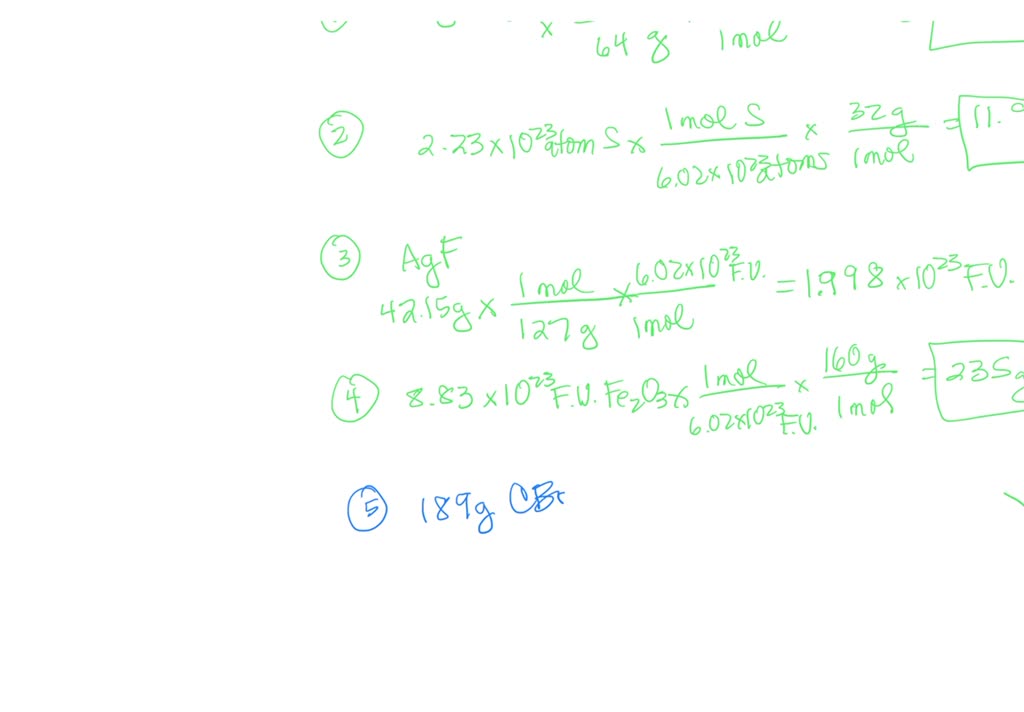 x
64 g 1 mol
② 2.23 x 10²³ atom S x 1 mol S / 6.02 x 10²³ atoms x 32 g / 1 mol = 11.9
③ AgF
42.15g x 1 mol / 127 g x 6.02 x 10²³ F.U. / 1 mol = 1.998 x 10²³ F.U.
④ 8.83 x 10²³ F.U. Fe₂O₃ x 1 mol / 6.02 x 10²³ F.U. x 160 g / 1 mol = 235 g
⑤ 189g CBr